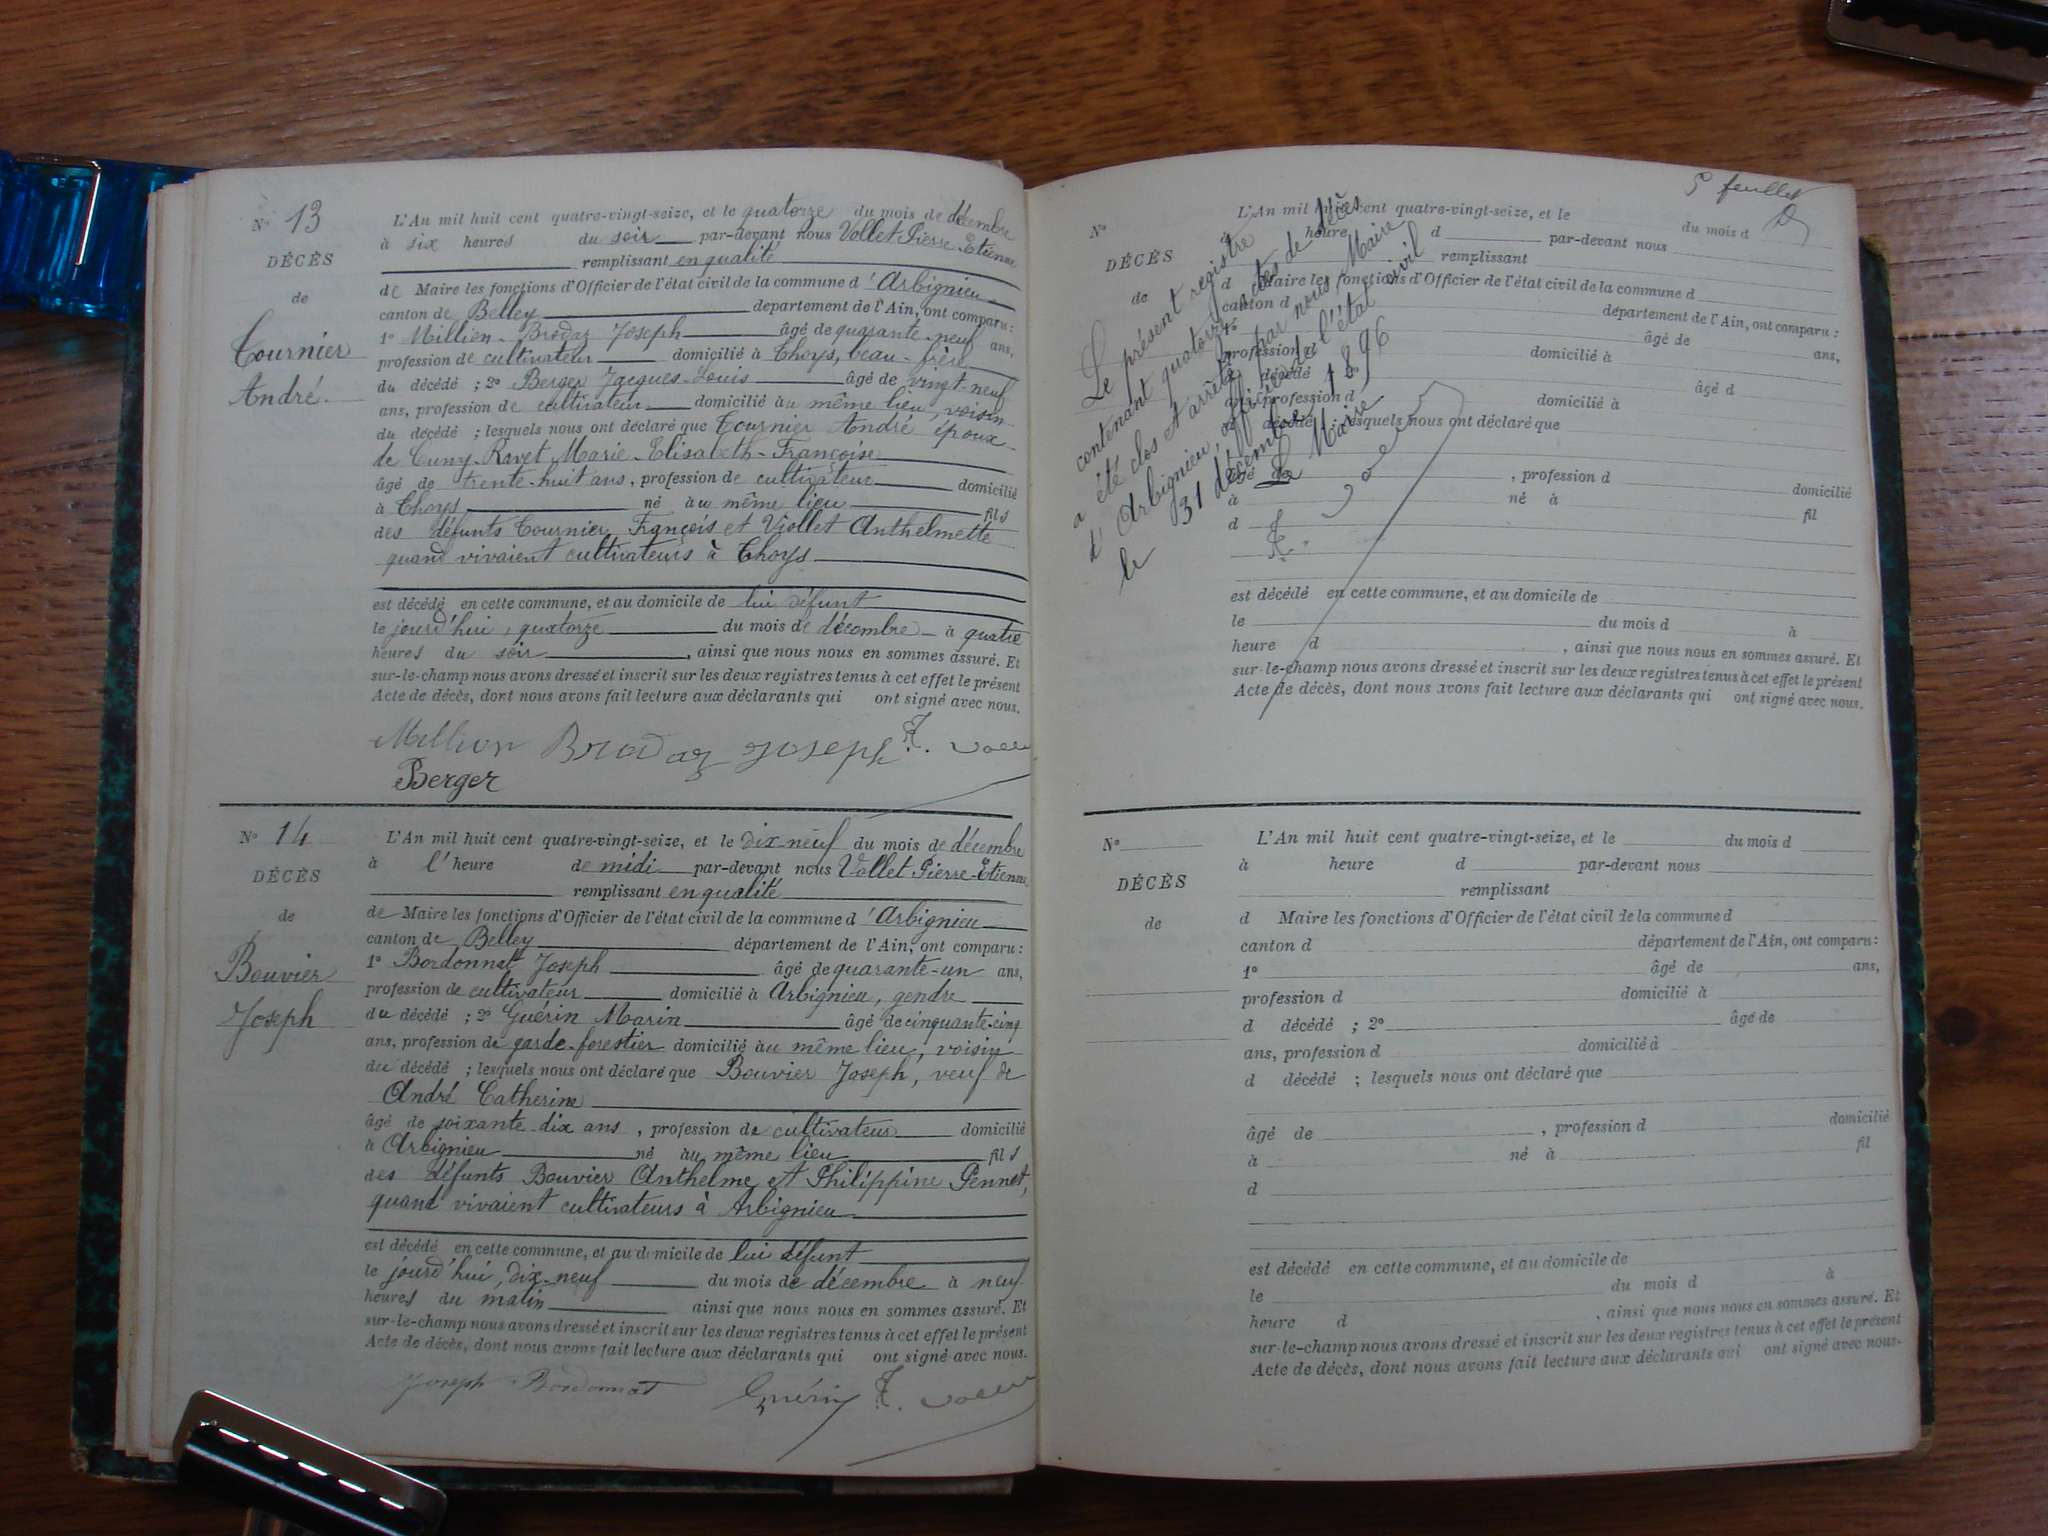 N° 13
DÉCÈS
de
Tournier
André.
L'An mil huit cent quatre-vingt-seize, et le quatorze du mois de décembre
à six heures du soir par-devant nous Vollet Pierre-Etienne
remplissant en qualité
de Maire les fonctions d'Officier de l'état civil de la commune d'Arbignieu
canton de Belley département de l'Ain, ont comparu :
1° Millien-Brodaz Joseph âgé de quarante-neuf ans,
profession de cultivateur domicilié à Thoys, beau-frère
du décédé ; 2° Berger Jacques-Louis âgé de vingt-neuf
ans, profession de cultivateur domicilié au même lieu, voisin
du décédé ; lesquels nous ont déclaré que Tournier André époux
de Cuny-Ravet Marie-Elisabeth-Françoise
âgé de trente-huit ans, profession de cultivateur domicilié
à Thoys né au même lieu fils
des défunts Tournier François et Viollet Anthelmette
quand vivaient cultivateurs à Thoys
est décédé en cette commune, et au domicile de lui défunt
le jourd'hui, quatorze du mois de décembre à quatre
heures du soir, ainsi que nous nous en sommes assuré. Et
sur-le-champ nous avons dressé et inscrit sur les deux registres tenus à cet effet le présent
Acte de décès, dont nous avons fait lecture aux déclarants qui ont signé avec nous.
Million Brodaz Joseph
Berger
N° 14
DÉCÈS
de
Bouvier
Joseph
L'An mil huit cent quatre-vingt-seize, et le dix-neuf du mois de décembre
à l'heure de midi par-devant nous Vollet Pierre-Etienne
remplissant en qualité
de Maire les fonctions d'Officier de l'état civil de la commune d'Arbignieu
canton de Belley département de l'Ain, ont comparu :
1° Bordonnat Joseph âgé de quarante-un ans,
profession de cultivateur domicilié à Arbignieu, gendre
du décédé ; 2° Guérin Marin âgé de cinquante-cinq
ans, profession de garde-forestier domicilié au même lieu, voisin
du décédé ; lesquels nous ont déclaré que Bouvier Joseph, veuf de
André Catherine
âgé de soixante-dix ans, profession de cultivateur domicilié
à Arbignieu né au même lieu fils
des défunts Bouvier Anthelme et Philippine Pennet,
quand vivaient cultivateurs à Arbignieu
est décédé en cette commune, et au domicile de lui défunt
le jourd'hui, dix-neuf du mois de décembre à neuf
heures du matin ainsi que nous nous en sommes assuré. Et
sur-le-champ nous avons dressé et inscrit sur les deux registres tenus à cet effet le présent
Acte de décès, dont nous avons fait lecture aux déclarants qui ont signé avec nous.
Joseph Bordonnat Guérin
5 feuillet
N°
DÉCÈS
de
L'An mil huit cent quatre-vingt-seize, et le du mois d
à heure d par-devant nous
remplissant
d Maire les fonctions d'Officier de l'état civil de la commune d
canton d département de l'Ain, ont comparu :
1° âgé de ans,
profession d domicilié à
d décédé âgé d
profession d domicilié à
d décédé ; lesquels nous ont déclaré que
âgé de , profession d domicilié
à né à fil
d
est décédé en cette commune, et au domicile de
le du mois d à
heure d , ainsi que nous nous en sommes assuré. Et
sur-le-champ nous avons dressé et inscrit sur les deux registres tenus à cet effet le présent
Acte de décès, dont nous avons fait lecture aux déclarants qui ont signé avec nous.
Le présent registre
contenant quatorze actes de décès
a été clos et arrêté par nous Maire
d'Arbignieu, officier de l'état civil
le 31 décembre 1896
Le Maire
N°
DÉCÈS
de
L'An mil huit cent quatre-vingt-seize, et le du mois d
à heure d par-devant nous
remplissant
d Maire les fonctions d'Officier de l'état civil de la commune d
canton d département de l'Ain, ont comparu :
1° âgé de ans,
profession d domicilié à
d décédé ; 2° âgé de
ans, profession d domicilié à
d décédé ; lesquels nous ont déclaré que
âgé de , profession d domicilié
à né à fil
d
est décédé en cette commune, et au domicile de
le du mois d à
heure d , ainsi que nous nous en sommes assuré. Et
sur-le-champ nous avons dressé et inscrit sur les deux registres tenus à cet effet le présent
Acte de décès, dont nous avons fait lecture aux déclarants qui ont signé avec nous.